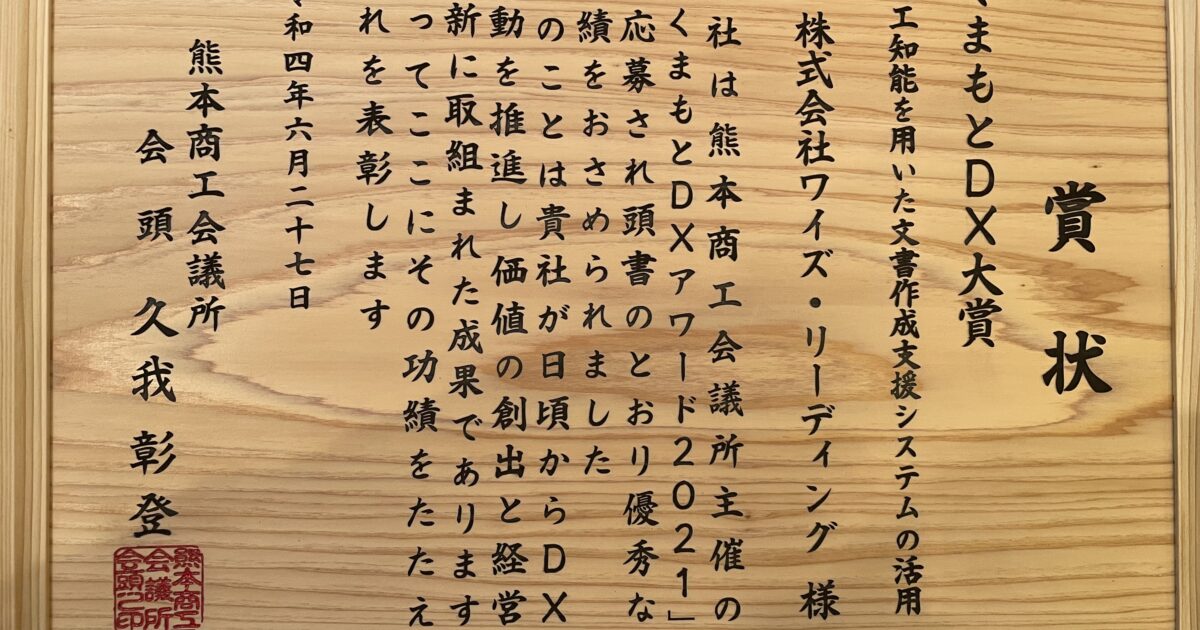 賞状
くまもとDX大賞
工知能を用いた文書作成支援システムの活用
株式会社ワイズ・リーディング 様
社は 熊本商工会議所主催の
くまもとDXアワード2021」
応募され頭書のとおり優秀な
績をおさめられました
のことは貴社が日頃からDX
動を推進し価値の創出と経営
新に取組まれた成果であります
ってここにその功績をたたえ
れを表彰します
令和四年六月二十七日
熊本商工会議所
会頭 久我彰登
熊本商工
会議所
会頭之印